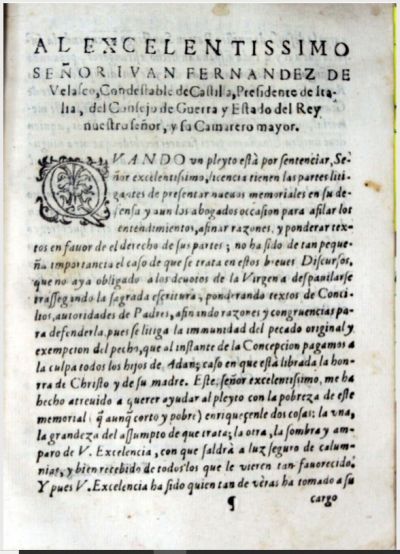 AL EXCELENTISSIMO
SEÑOR IVAN FERNANDEZ DE
Velasco, Condestable de Castilla, Presidente de Ita-
lia, del Consejo de Guerra y Estado del Rey
nuestro señor, y su Camarero mayor.
QVANDO vn pleyto està por sentenciar, Se-
ñor excelentissimo, licencia tienen las partes liti-
gantes de presentar nueuos memoriales en su de-
fensa y aun los abogados occasion para afilar los
entendimientos, afinar razones, y ponderar tex-
tos en fauor de el derecho de sus partes; no ha sido de tan peque-
ña importancia el caso de que se trata en estos breues Discursos,
que no aya obligado a los deuotos de la Virgen a despauilarse
trassegando la sagrada escritura, ponderando textos de Conci-
lios, autoridades de Padres, afinando razones y congruencias pa-
ra defenderla. pues se litiga la immunidad del pecado original y
exempcion del pecho, que al instante de la Concepcion pagamos a
la culpa todos los hijos de Adan; caso en que està librada la hon-
rra de Christo y de su madre. Este, señor excelentissimo, me ha
hecho atreuido a querer ayudar al pleyto con la pobreza de este
memorial (q̃ aunq̃ corto y pobre) enriqueçenle dos cosas: la vna,
la grandeza del assumpto de que trata; la otra, la sombra y am-
paro de V. Excelencia, con que saldrà a luz seguro de calum-
nias, y bien recebido de todos los que le vieren tan fauorecido.
Y pues V. Excelencia ha sido quien tan de vèras ha tomado a su
¶ cargo